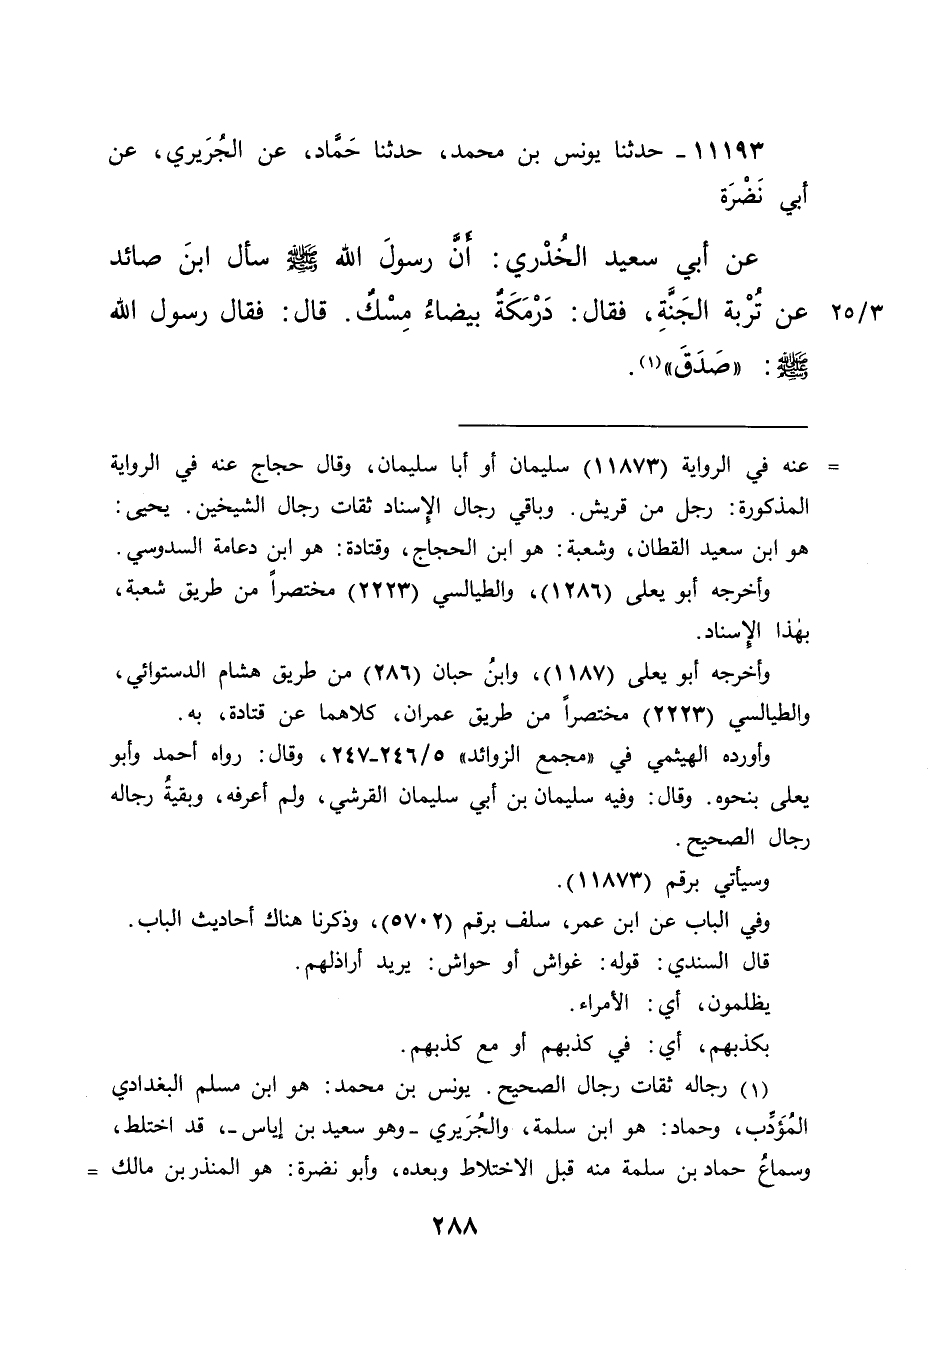 ١١١٩٣ ـ حدثنا يونس بن محمد، حدثنا حَمَّاد، عن الجُرَيري، عن
أبي نَضْرَة
عن أبي سعيد الخُدْري: أَنَّ رسولَ الله ﷺ سأل ابنَ صائد
٢٥/٣ عن تُرْبة الجَنَّةِ، فقال: دَرْمَكَةٌ بيضاءُ مِسْكٌ. قال: فقال رسول الله
ﷺ: «صَدَقَ»(١).
= عنه في الرواية (١١٨٧٣) سليمان أو أبا سليمان، وقال حجاج عنه في الرواية
المذكورة: رجل من قريش. وباقي رجال الإسناد ثقات رجال الشيخين. يحيى:
هو ابن سعيد القطان، وشعبة: هو ابن الحجاج، وقتادة: هو ابن دعامة السدوسي.
وأخرجه أبو يعلى (١٢٨٦)، والطيالسي (٢٢٢٣) مختصراً من طريق شعبة،
بهٰذا الإِسناد.
وأخرجه أبو يعلى (١١٨٧)، وابنُ حبان (٢٨٦) من طريق هشام الدستوائي،
والطيالسي (٢٢٢٣) مختصراً من طريق عمران، كلاهما عن قتادة، به.
وأورده الهيثمي في «مجمع الزوائد» ٢٤٦/٥ـ٢٤٧، وقال: رواه أحمد وأبو
يعلى بنحوه. وقال: وفيه سليمان بن أبي سليمان القرشي، ولم أعرفه، وبقيةُ رجاله
رجال الصحيح.
وسيأتي برقم (١١٨٧٣).
وفي الباب عن ابن عمر، سلف برقم (٥٧٠٢)، وذكرنا هناك أحاديث الباب.
قال السندي: قوله: غواش أو حواش: يريد أراذلهم.
يظلمون، أي: الأمراء.
بكذبهم، أي: في كذبهم أو مع كذبهم.
(١) رجاله ثقات رجال الصحيح. يونس بن محمد: هو ابن مسلم البغدادي
المُؤَدِّب، وحماد: هو ابن سلمة، والجُرَيري ـ وهو سعيد بن إياس ـ، قد اختلط،
وسماعُ حماد بن سلمة منه قبل الاختلاط وبعده، وأبو نضرة: هو المنذر بن مالك =
٢٨٨